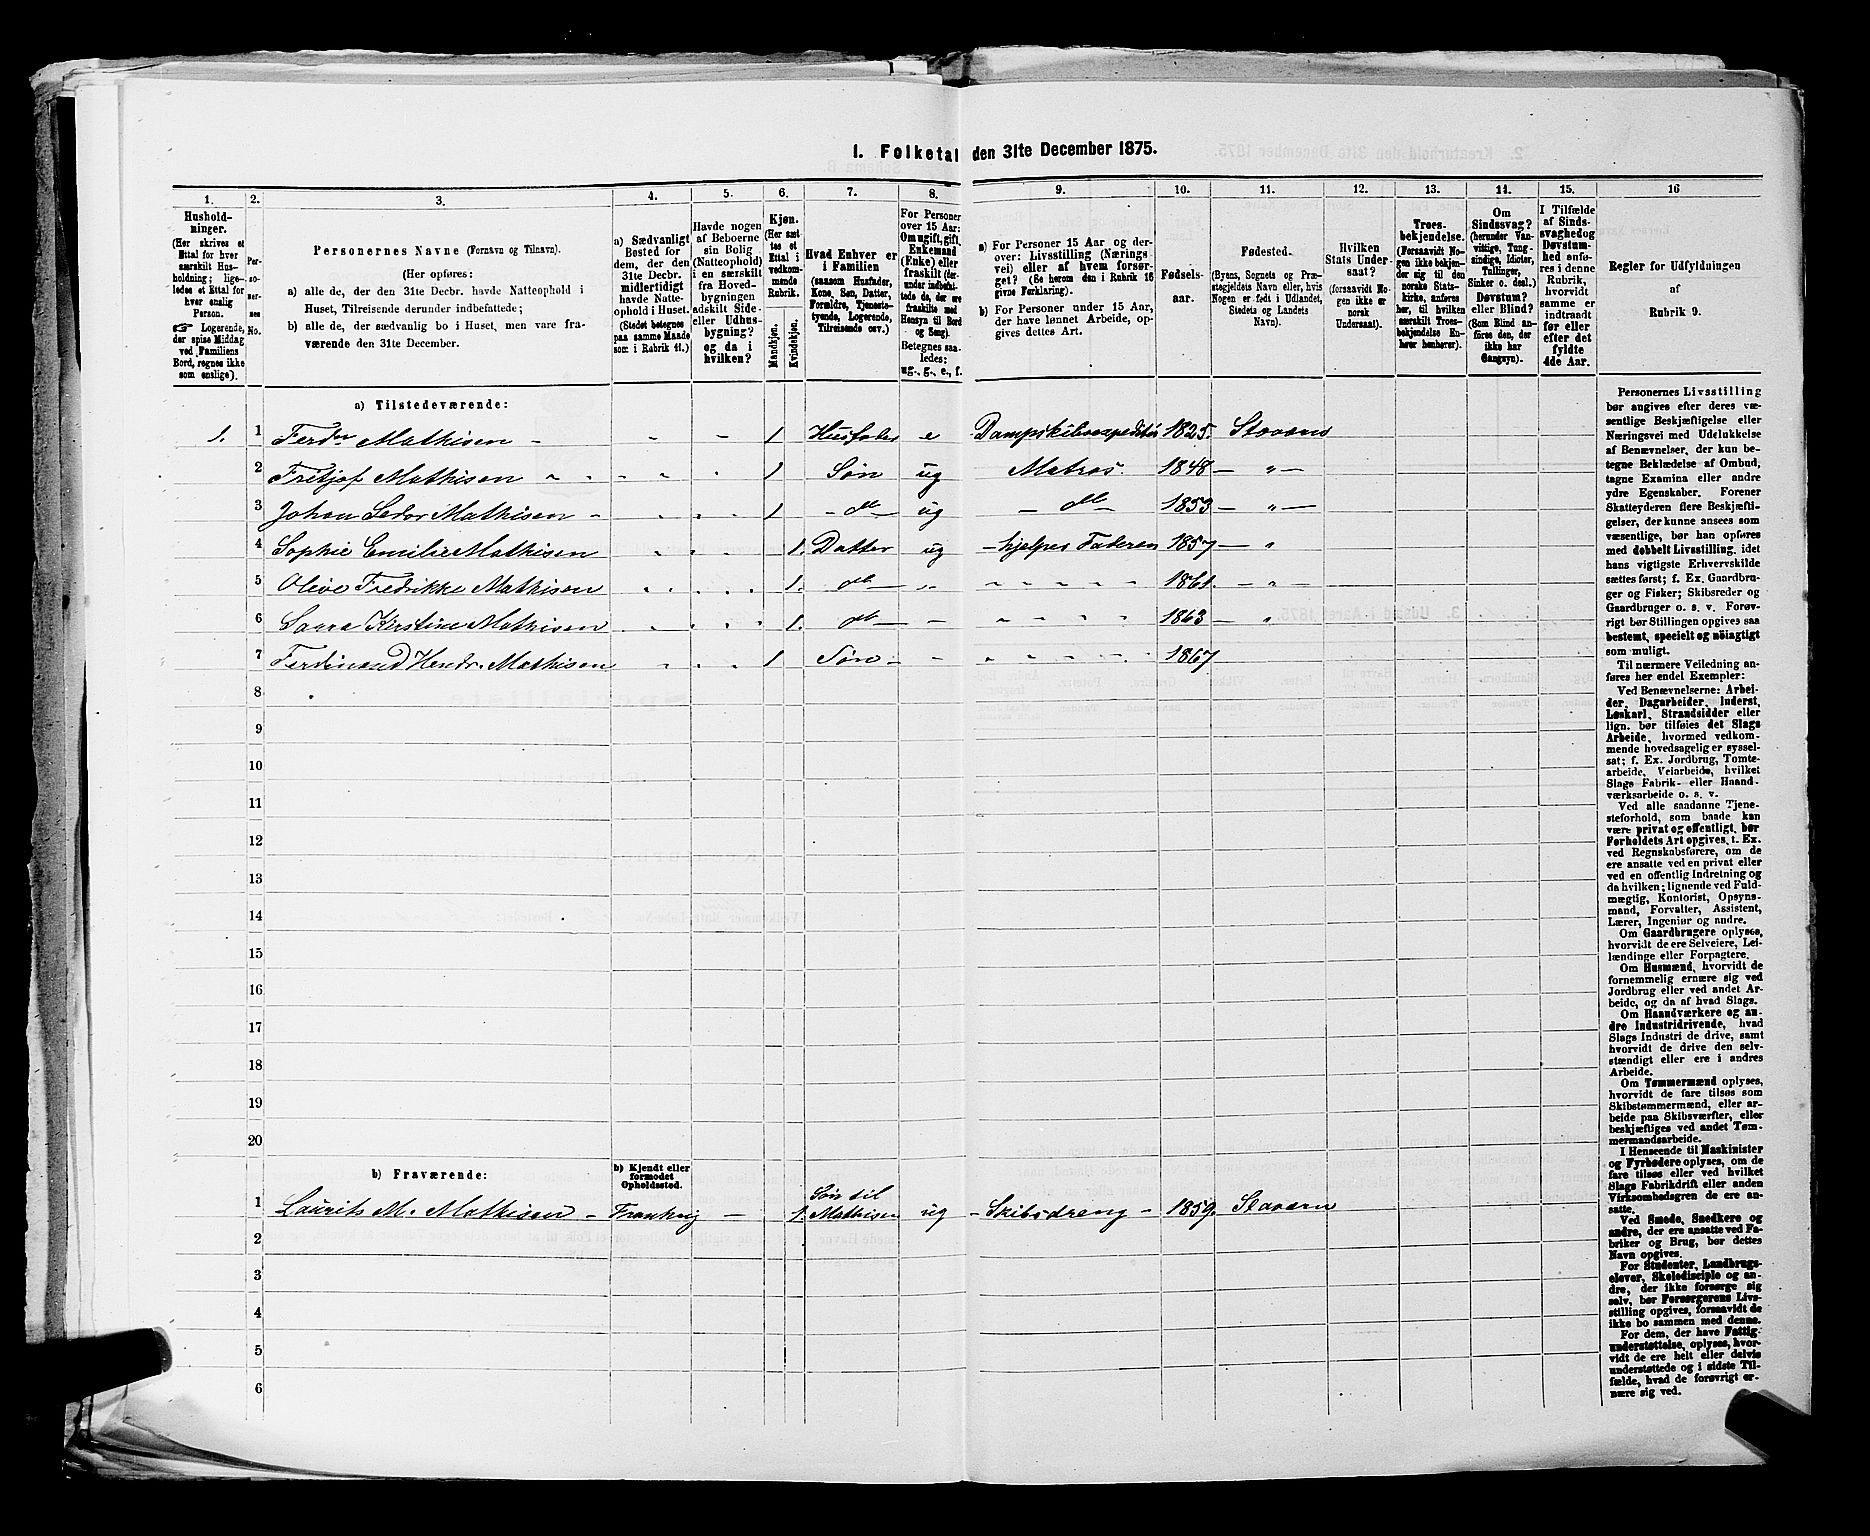 1. Folketal den 31te December 1875.
1.
Hushold-
ninger.
(Her skrives et
Ettal for hver
særskilt Hus-
holdning; lige-
ledes et Ettal for
hver enslig
Person.
Logerende,
der spise Middag
ved Familiens
Bord, regnes ikke
som enslige).
2.
Per-
so-
ner-
nes
No.
3.
Personernes Navne (Fornavn og Tilnavn).
(Her opføres:
a) alle de, der den 31te Decbr. havde Natteophold i
Huset, Tilreisende derunder indbefattede;
b) alle de, der sædvanlig bo i Huset, men vare fra-
værende den 31te December.
4.
a) Sædvanligt
Bosted for
dem, der den
31te Decbr.
midlertidigt
havde Natte-
ophold i Huset.
(Stedet betegnes
paa samme Maade
som i Rubrik 11.)
5.
Havde nogen
af Beboerne
sin Bolig
(Natteophold)
i en særskilt
fra Hoved-
bygningen
adskilt Side-
eller Udhus-
bygning?
og da i
hvilken?
6.
Kjøn.
(Her sæt-
tes et
Ettal i
vedkom-
mende
Rubrik.
Mandkjøn.
Kvindekjøn.
7.
Hvad Enhver er
i Familien
(saasom Husfader,
Kone, Søn, Datter,
Forældre, Tjeneste-
tyende, Logerende,
Tilreisende osv.)
8.
For Personer
over 15 Aar:
Om ugift, gift,
Enkemand
(Enke) eller
fraskilt (der-
under indbefat-
tede de, der ere
fraskilte med
Hensyn til Bord
og Seng).
Betegnes saa-
ledes:
ug., g., e., f.
9.
a) For Personer 15 Aar og der-
over: Livsstilling (Nærings-
vei) eller af hvem forsør-
get? (Se herom den i Rubrik 16
givne Forklaring).
b) For Personer under 15 Aar,
der have lønnet Arbeide, op-
gives dettes Art.
10.
Fødsels-
aar.
11.
Fødested.
(Byens, Sognets og Præ-
stegjeldets Navn eller, hvis
Nogen er født i Udlandet,
Stedets og Landets
Navn).
12.
Hvilken
Stats Under-
saat?
(forsaavidt No-
gen ikke er
norsk
Undersaat).
13.
Troes-
bekjendelse.
(Forsaavidt No-
gen ikke bekjen-
der sig til den
norske Stats-
kirke, anføres
her, til hvilken
særskilt Troes-
bekjendelse En-
hver henhører).
14.
Om
Sindssvag?
(herunder Van-
vittige, Tung-
sindige, Idioter,
Tullinger,
Sinker o. desl.)
Døvstum?
eller Blind?
(Som Blind an-
føres den, der
ikke har
Gangsyn).
15.
I Tilfælde
af Sinds-
svaghed og
Døvstum-
hed anfø-
res i denne
Rubrik,
hvorvidt
samme er
indtraadt
før eller
efter det
fyldte
4de Aar.
16
Regler for Udfyldningen
af
Rubrik 9.
a) Tilstedeværende:
1. 1 Ferdn Mathisen - 1 Husfader e Dampskibsexpeditør 1825. Staværn
2 Fritjof Mathisen 1 Søn ug Matros. 1848 — „ —
3 Johan Mathisen - 1 - do — ug — do — 1853 — „ —
4 Sophie Emilie Mathisen 1. Datter ug - hjelper Faderen 1857 — „
5 Olive Fredrikke Mathisen 1. do — „ „ „ „ 1861. — „ —
6 Laura Kirstine Mathisen 1. do — — „ „ „ „ 1863 — „
7 Ferdinand Hendr. Mathisen 1 Søn - - „ „ „ „ 1867
8
9
10
11
12
13
14
15
16
17
18
19
20
b) Fraværende:
b) Kjendt eller
formodet
Opholdssted.
Søn til
1 Laurits M. Mathisen - 1. Mathisen ug - Skibsdreng - 1859. Staværn
2
3
4
5
6
Personernes Livsstilling
bør angives efter deres væ-
sentlige Beskjæftigelse eller
Næringsvei med Udelukkelse
af Benævnelser, der kun be-
tegne Beklædelse af Ombud,
tagne Examina eller andre
ydre Egenskaber. Forener
Skatteyderen flere Beskjæfti-
gelser, der kunne ansees som
væsentlige, bør han opføres
med dobbelt Livsstilling, idet
hans vigtigste Erhvervskilde
sættes først; f. Ex. Gaardbru-
ger og Fisker; Skibsreder og
Gaardbruger o. s. v. Forøv-
rigt bør Stillingen opgives saa
bestemt, specielt og nøiagtigt
som muligt.
Til nærmere Veiledning an-
føres her endel Exempler:
Ved Benævnelserne: Arbei-
der, Dagarbeider, Inderst,
Løskarl, Strandsidder eller
lign. bør tilføies det Slags
Arbeide, hvormed vedkom-
mende hovedsagelig er syssel-
sat; f. Ex. Jordbrug, Tomte-
arbeide, Veiarbeide, hvilket
Slags Fabrik- eller Haand-
værksarbeide o. s. v.
Ved alle saadanne Tjene-
steforhold, som baade kan
være privat og offentligt, bør
Forholdets Art opgives, t. Ex.
ved Regnskabsførere, om de
ere ansatte ved en privat eller
ved en offentlig Indretning og
da hvilken; lignende ved Fuld-
mægtig, Kontorist, Opsyns-
mand, Forvalter, Assistent,
Lærer, Ingeniør og andre.
Om Gaardbrugere oplyses,
hvorvidt de ere Selveiere, Lei-
lændinge eller Forpagtere.
Om Husmænd, hvorvidt de
fornemmelig ernære sig ved
Jordbrug eller ved andet Ar-
beide, og da af hvad Slags.
Om Haandværkere og an-
dre Industridrivende, hvad
Slags Industri de drive, samt
hvorvidt de drive den selv-
stændigt eller ere i andres
Arbeide.
Om Tømmermænd oplyses,
hvorvidt de fare tilsøs som
Skibstømmermænd, eller ar-
beide paa Skibsværfter, eller
beskjæftiges ved andet Tøm-
mermandsarbeide.
I Henseende til Maskinister
og Fyrbødere oplyses, om de
fare tilsøs eller ved hvilket
Slags Fabrikdrift eller anden
Virksomhedsgren de ere an-
satte.
Ved Smede, Snedkere og
andre, der ere ansatte ved Fa-
briker og Brug, bør dettes
Navn opgives.
For Studenter, Landbrugs-
elever, Skoledisciple og an-
dre, der ikke forsørge sig
selv, bør Forsørgerens Livs-
stilling opgives, forsaavidt de
ikke bo sammen med denne.
For dem, der have Fattig-
understøttelse, oplyses, hvor-
vidt de ere helt eller delvis
understøttede og i sidste Til-
fælde, hvad de forøvrigt er-
nære sig ved.